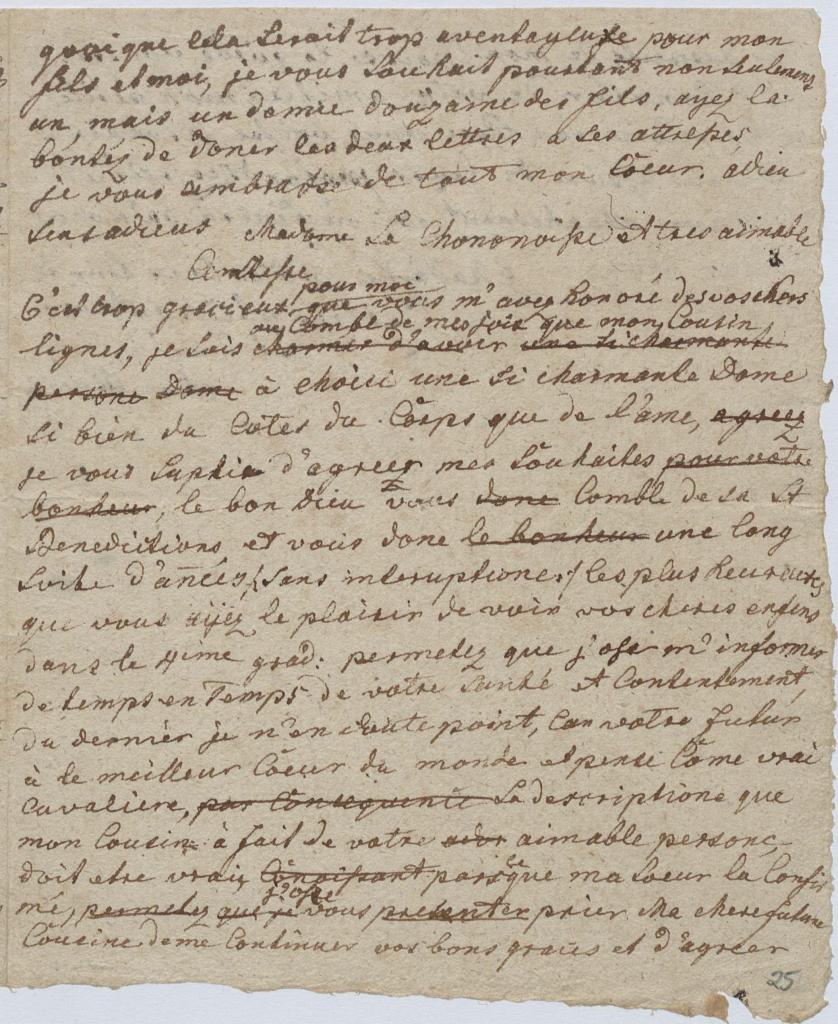 quoique cela serait trop aventageuxe pour mon
fils et moi, je vous souhait pourtant non seulement
un, mais un domie douzaine des fils, ayez la
bontés de doner les deux lettres a ses
je vous ambrasse de tout mon Cœur. adieu
sens adieus Madame La Chononoisse et tres aimable
Comtesse
pour moi
C'est trop gracieux que vous m'avez honoré des vos chers
au Comble de mes joix que mon Cousin
lignes, je suis charmer d'avoir une si charmante
persone Dame à choisi une si charmante Dame
si bien du Côtes du Côrps que de l'âme, agreez
je vous suplie d'agreer mes souhaites pour votre
bonheur, le bon Dieu vous done Comble de sa St
Benedictions et vous done le bonheur une long
suite d'années /: sans interuptione :/ les plus heureuses
que vous ayez le plaisir de voir vos cheres enfens
dans le 4ime grad: permetez que j'ose m'informer
de temps en Temps de votre santé et Contentement,
du dernier je n'en doute point, Car votre futur
à le meilleur Cœur du monde et pense Côme vrai
Cavaliere, par Consequente La descriptione que
mon Cousin à fait de votre aimable persone,
doit etre vrai, Conoissant parsque ma soeur la Confir
j'ose
mé, permetez que je vous presenter prier Ma chere future
Cousine de me Continuer vos bons graces et d'agreer
25